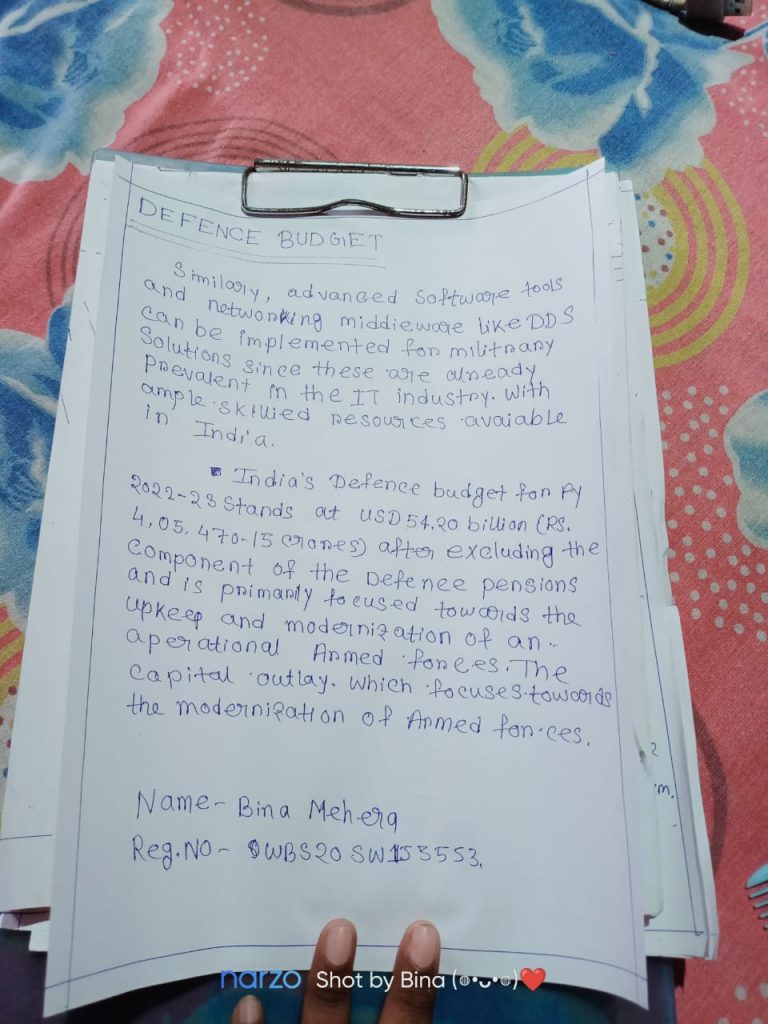 DEFENCE BUDGET
Similary, advanced Software tools
and networking middieware like DDS
can be implemented for militnary
Solutions since these are already
prevalent in the IT industry. With
ample skillied resources avaiable
in India.
▪ India's Defence budget for Fy
2022-23 Stands at USD 54.20 billion (RS.
4,05,470-15 crores) after excluding the
component of the Defence pensions
and is primarily focused towards the
upkeep and modernization of an-
aperational Armed forces. The
Capital outlay. Which focuses towards
the modernization of Armed forces.
Name- Bina Mehera
Reg.NO- SWBS20SW153553.
2
m.
narzo Shot by Bina (๏•ᴗ•๏)❤️